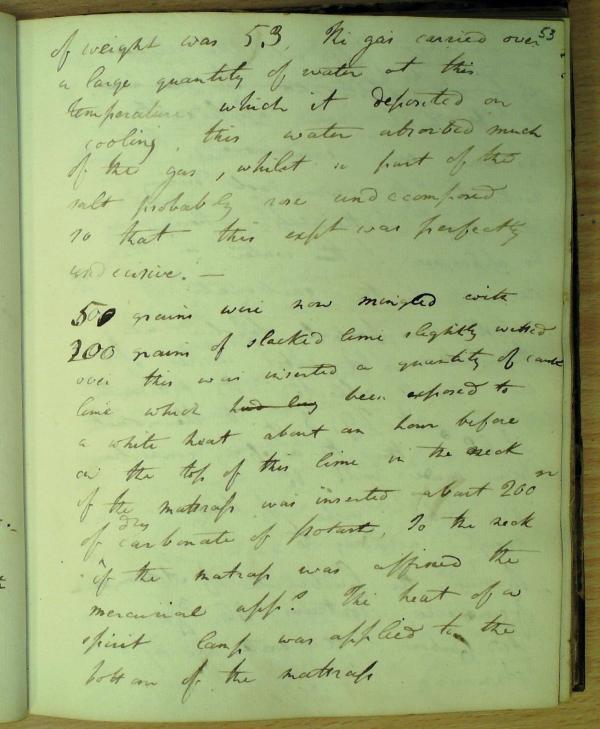 53
of weight was 5.3. The gas carried over
a large quantity of water at this
temperature which it deposited on
cooling, this water absorbed much
of the gas, whilst a part of the
salt probably rose undecomposed
so that this expt was perfectly
undecisive. —
500 grains were now mingled with
200 grains of slacked lime slightly wetted
over this was inserted a quantity of
lime which had been exposed to
a white heat about an hour before
on the top of this lime in the neck
of the matrass was inserted about 200 gr
of dry carbonate of potash, To the neck
of the matrass was affixed the
mercurial apps. The heat of a
spirit lamp was applied to the
bottom of the matrass